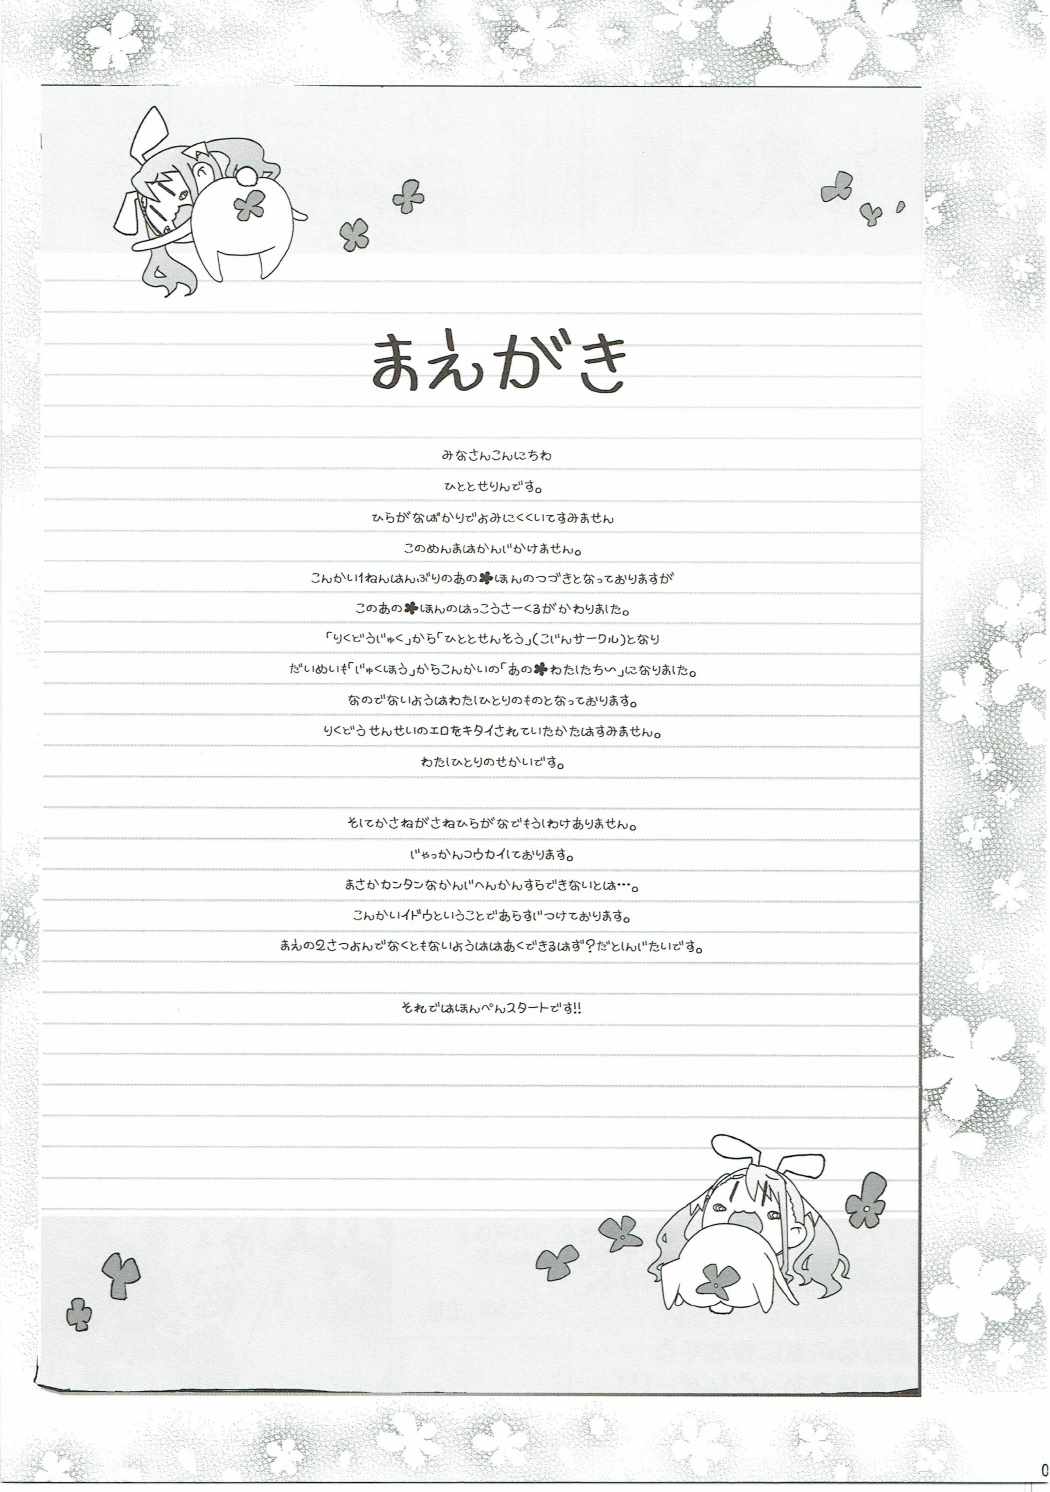 まえがき
みなさんこんにちわ
ひととせりんです。
ひらがなばかりでよみにくくいてすみません
このめんまはかんじかけません。
こんかい1ねんはんぶりのあの✿ほんのつづきとなっておりますが
このあの✿ほんのはっこうさーくるがかわりました。
「りくどうじゅく」から「ひととせんそう」(こじんサークル)となり
だいめいも「じゅくほう」からこんかいの「あの✿わたしたち〜」になりました。
なのでないようはわたしひとりのものとなっております。
りくどうせんせいのエロをキタイされていたかたはすみません。
わたしひとりのせかいです。
そしてかさねがさねひらがなでもうしわけありません。
じゃっかんコウカイしております。
まさかカンタンなかんじへんかんすらできないとは…。
こんかいイドウということであらすじつけております。
まえの2さつよんでなくともないようははあくできるはず?だとしんじたいです。
それではほんぺんスタートです!!
0